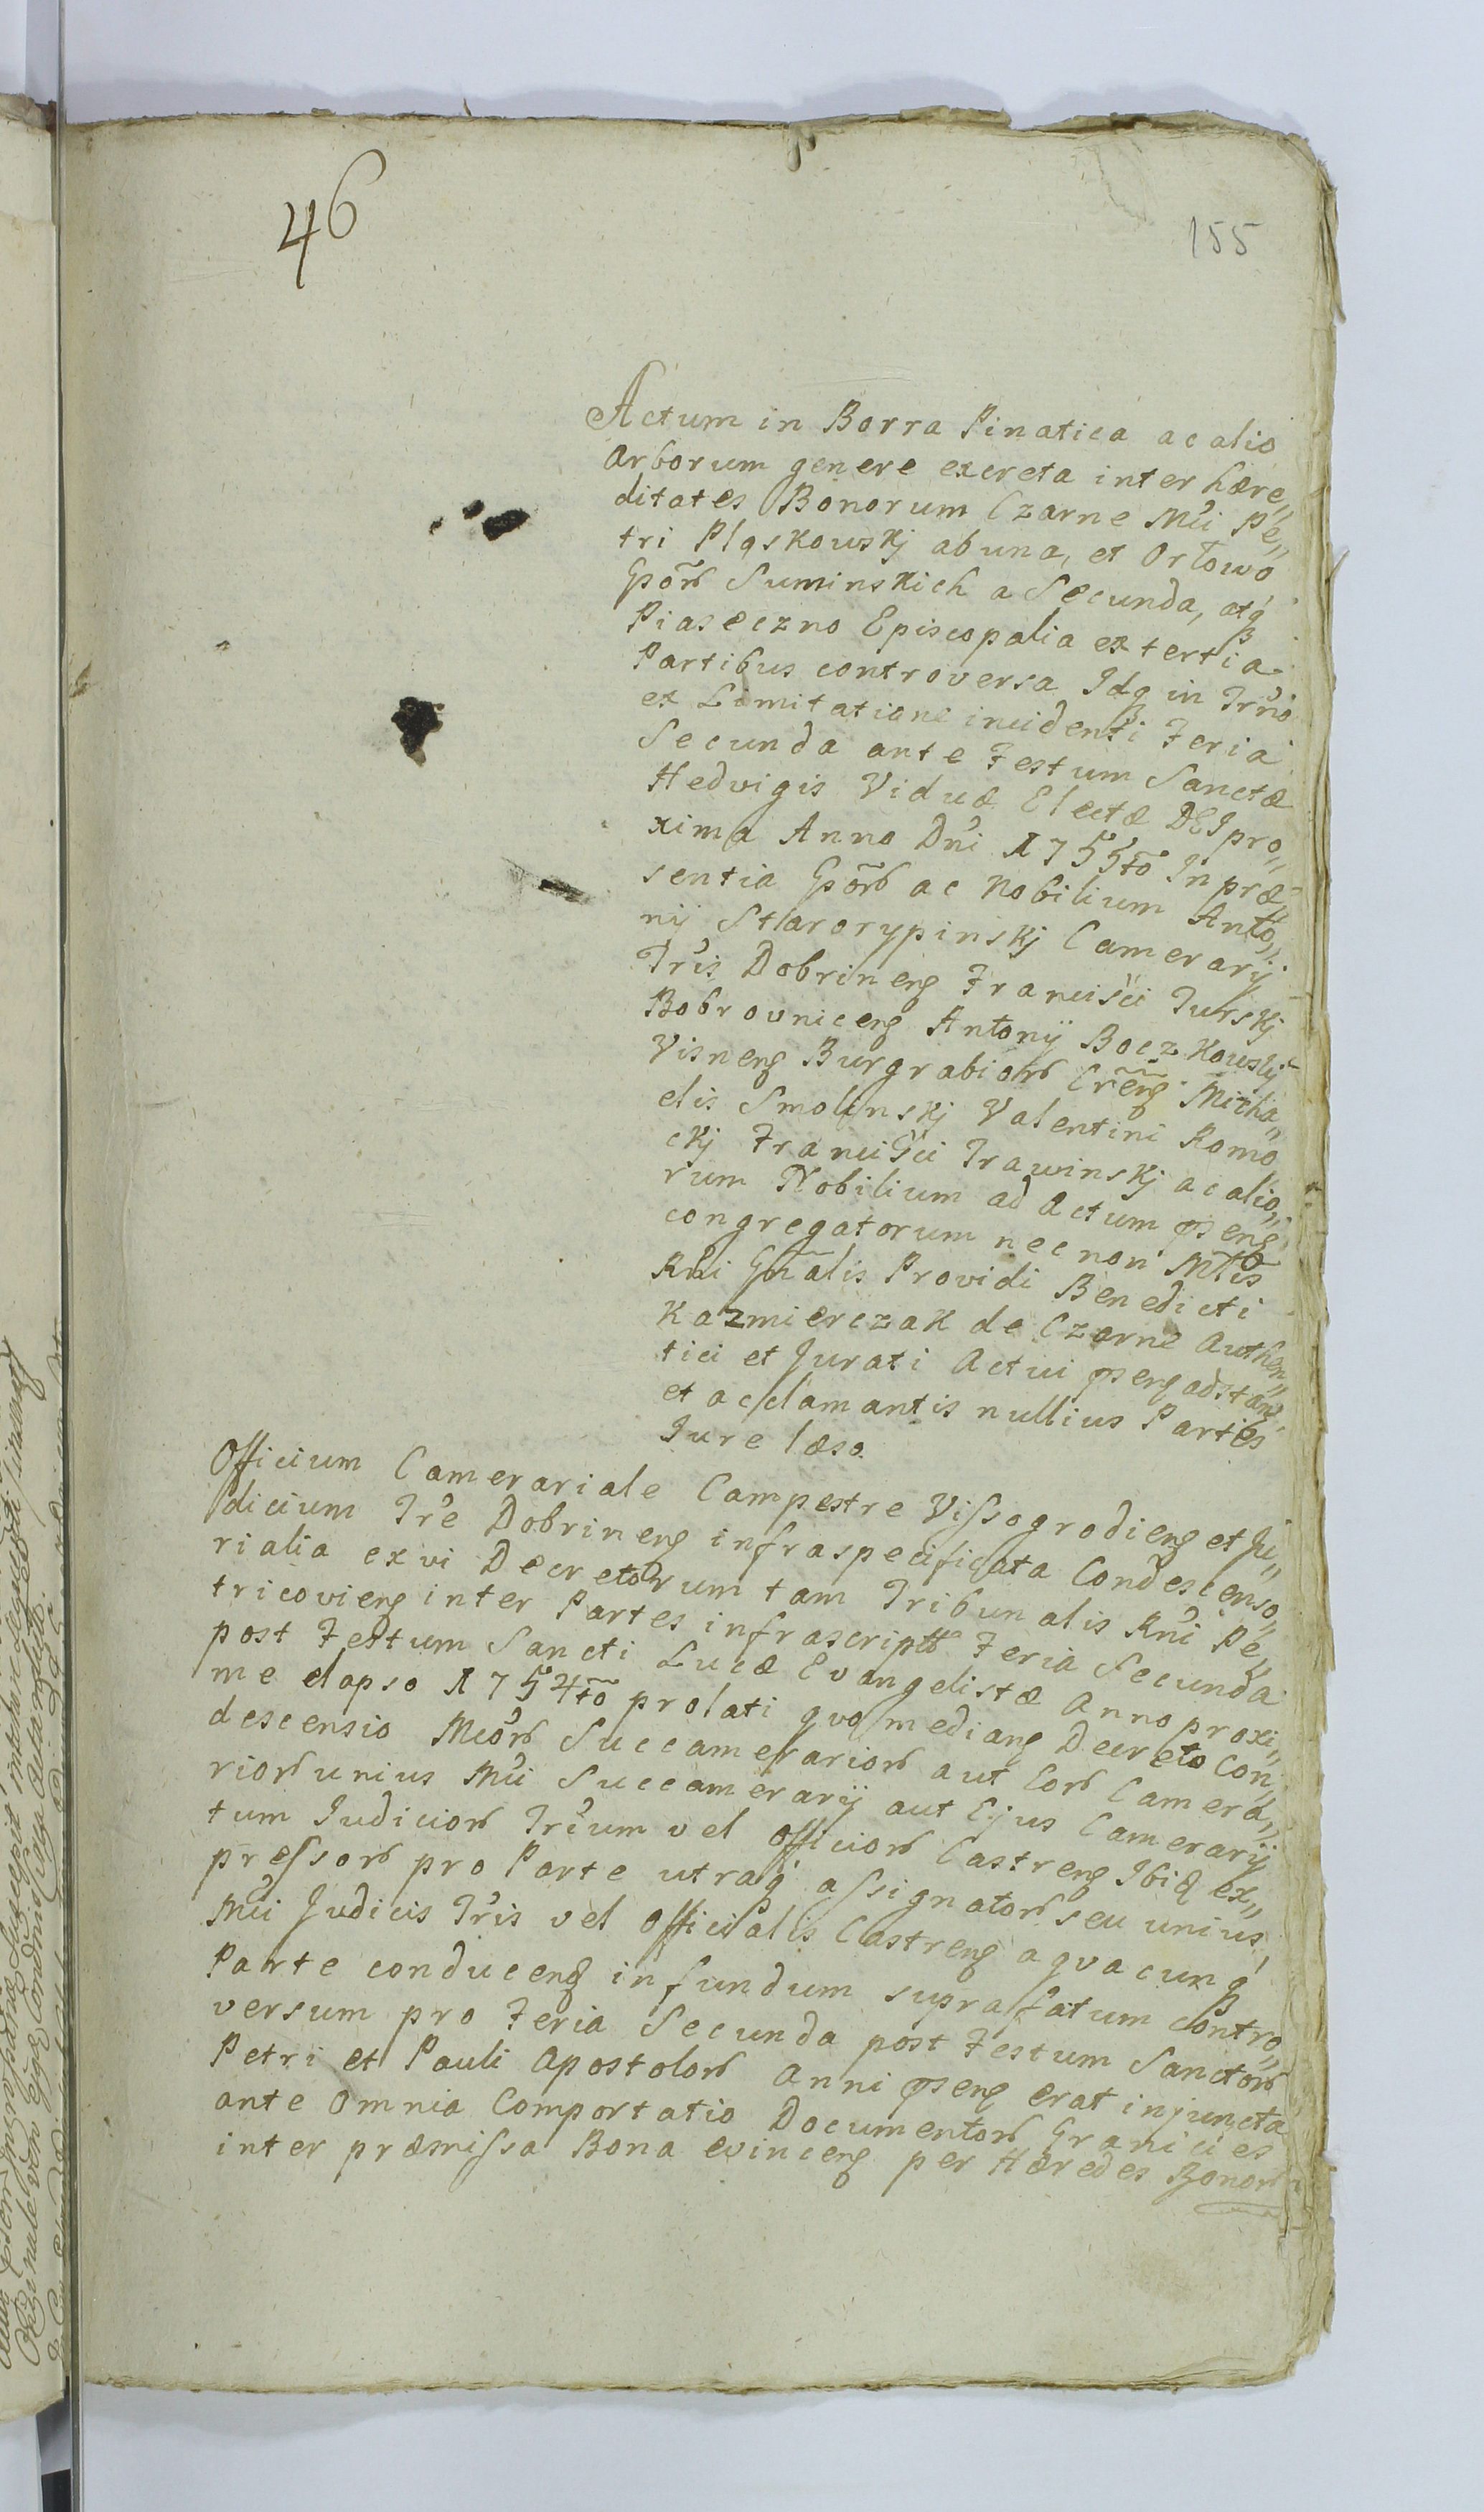 46
155
Actum in Borra Pinatica ac alio
Arborum genere excreta inter hære„
ditates Bonorum Czarne Mci Pe„
tri Pląskowskj ab una, et Orłowo
Gpõrũ Suminskich a Secunda, atq
Piaseczno Episcopalia ex tertia
Partibus controversa Idq in Trno
ex Limitatione incidenti Feria
Secunda ante Festum Sanctæ
Hedvigis Viduæ Electæ DEI pro„
xima Anno Dni 1755tõ In præ„
sentia Gpõrũ ac Nobilium Anto„
nij Starorypinskj Camerarij
Tris Dobrinenȝ Francisci Turskj
Bobrovnicenȝ Antonij Boczkowskj
Visnenȝ Burgrabiorũ Crẽnȝ Micha„
elis Smolinskj Valentini Romo
ckj Francisci Trawinskj ac alio„
rum Nobilium ad Actum psenȝ
congregatorum nec non Mtis
Rni Gnãlis Providi Benedicti
Kazmierczak de Czarne Authen„
tici et Jurati Actui psenȝ adstan„
et acclamantis nullius Partis
Jure læso
Officium Camerariale Campestre Vissogrodienȝ et Ju„
dicium Tre Dobrinenȝ infraspecificata Condescenso„
rialia ex vi Decretorum tam Tribunalis Rni Pe„
tricovienȝ inter Partes infrascriptũ Feria Secunda
post Festum Sancti Lucæ Evangelistæ Anno proxi„
me elapso 1754tõ prolati qvo medianȝ Decreto Con„
descensio Mcorũ Succamerariorũ aut Eorũ Camera„
riorũ unius Mci Succamerarij aut Ejus Camerarij
tum Judiciorũ Trium vel Officiorũ Castrenȝ Ibiq ex„
pressorũ pro Parte utraq assignatorũ seu unius
Mci Judicis Tris vel Officialis Castrenȝ a qvacunq
Parte conducenȝ in fundum suprafatum contro„
versum pro Feria Secunda post Festum Sanctorũ
Petri et Pauli Apostolorũ Anni psenȝ erat injuncta
ante Omnia Comportatio Documentorũ Granicies
inter præmissa Bona evincenȝ per Hæredes Bonorũ